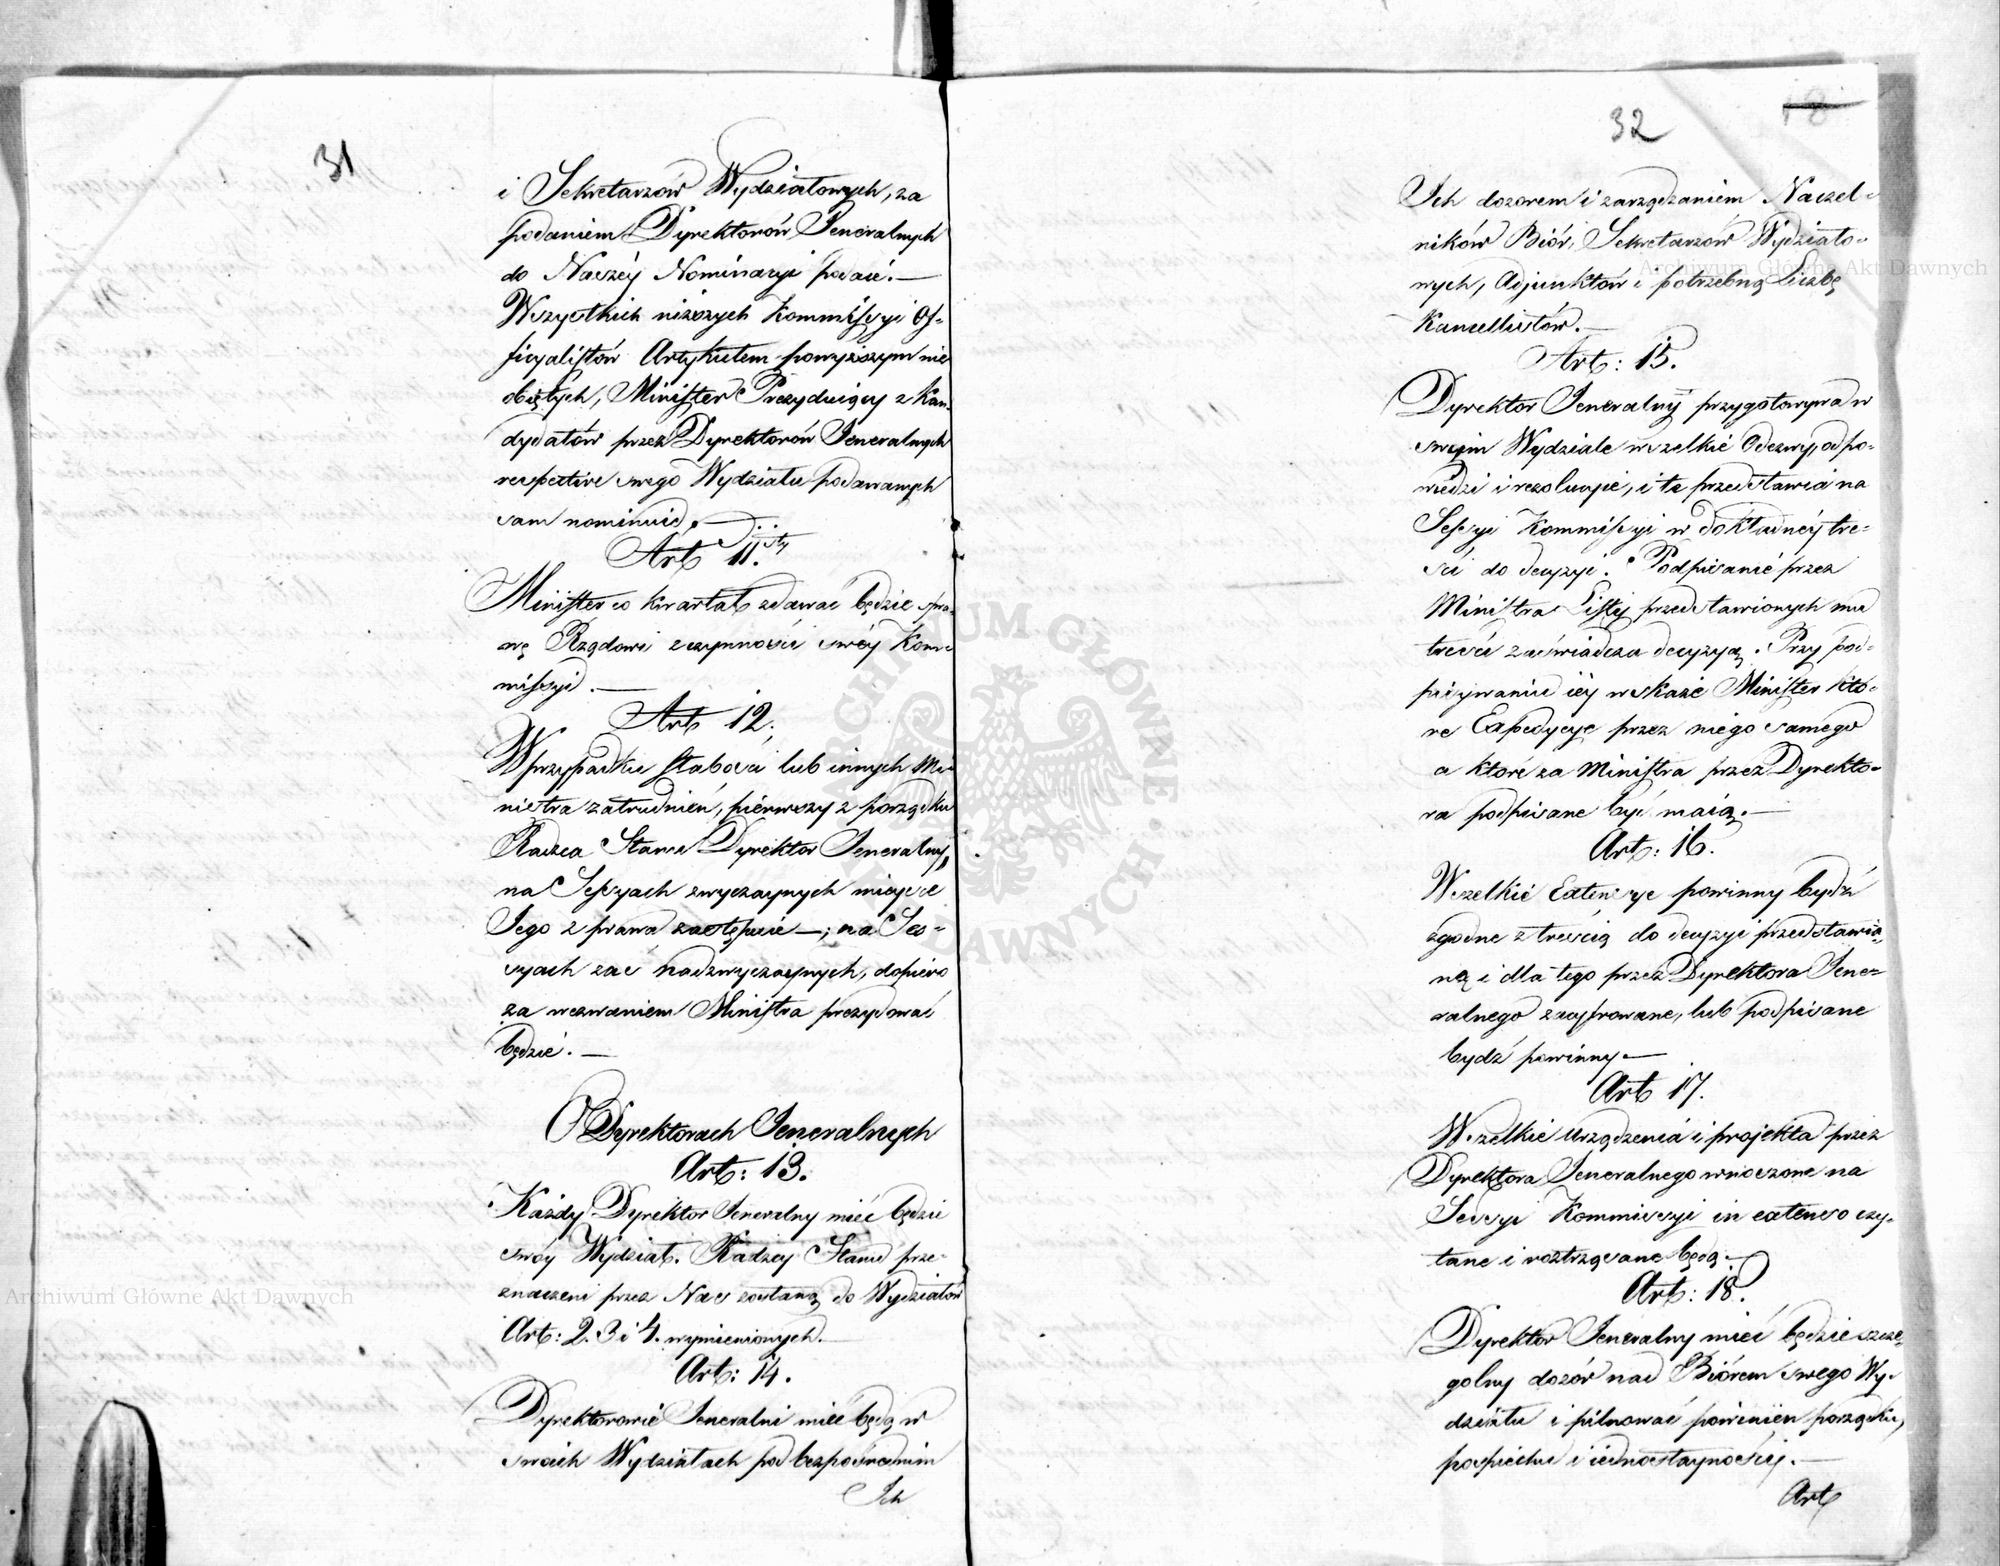 31
i Sekretarzów Wydziałowych, za
podaniem Dyrektorów Jeneralnych
do Naszéy Nominacyi podaie.—
Wszystkich niższych Kommissyi Of-
ficyalistów Artykułem powyższym nie
obiętych, Minister Prezyduiący z Kan-
dydatów przez Dyrektorów Jeneralnych
respective swego Wydziału podawanych
sam nominuie.—
Art 11.sty
Minister co kwartał zdawać będzie spra-
wę Rządowi z czynności swéy Kom-
missyi.—
Art 12.
W przypadku słabości lub innych Mi-
nistra zatrudnień, piérwszy z porządku
Radzca Stanu Dyrektor Jeneralny,
na Sessyach zwyczaynych mieysce
Jego z prawa zastępuie—; na Ses-
syach zaś nadzwyczaynych, dopiero
za wezwaniem Ministra prezydować
będzie.—
O Dyrektorach Jeneralnych
Art: 13.
Każdy Dyrektor Jeneralny mieć będzie
swóy Wydział. Radzcy Stanu prze-
znaczeni przez Nas zostaną do Wydziałów
Art: 2. 3 i 4. wymienionych.—
Art: 14.
Dyrektorowie Jeneralni mieć będą w
swoich Wydziałach pod bezpośrednim
Ich
32
18
Ich dozorem i zarządzaniem Naczel-
ników Biór, Sekretarzów Wydziało-
wych, Adjunktów i potrzebną liczbę
Kancellistów.—
Art: 15.
Dyrektor Jeneralny przygotowywa w
swoim Wydziale wszelkie Odezwy, odpo-
wiedzi i rezolucyie, i te przedstawia na
Sessyi Kommissyi w dokładnéy tre-
ści do decyzyi. Podpisanie przez
Ministra Listy przedstawionych mu
treści zaświadcza decyzyą. Przy pod-
pisywaniu iéy wskaże Minister któ-
re Expedycye przez niego samego
a które za Ministra przez Dyrekto-
ra podpisane być maią.—
Art: 16.
Wszelkie Extensye powinny bydź
zgodne z treścią do decyzyi przedstawio-
ną i dla tego przez Dyrektora Jene-
ralnego zacyfrowane, lub podpisane
bydź powinny—
Art 17.
Wszelkie urządzenia i projekta przez
Dyrektora Jeneralnego wnoszone na
Sessyi Kommissyi in extenso czy-
tane i roztrząsane będą.—
Art: 18.
Dyrektor Jeneralny mieć będzie szcze-
gólny dozór nad Biórem swego Wy-
działu i pilnować powinien porządku,
pospiechu i iednostayności.—
Art
Archiwum Główne Akt Dawnych
Archiwum Główne Akt Dawnych
ARCHIWUM GŁÓWNE AKT DAWNYCH